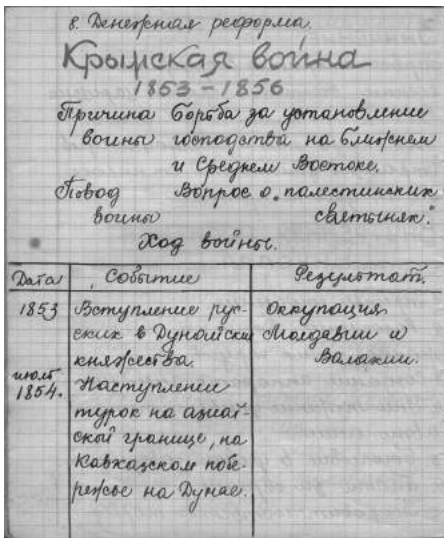 8. Денежная реформа.
Крымская война
1853 – 1856
Причина Борьба за установление
войны господства на Ближнем
и Среднем Востоке.
Повод Вопрос о „палестинских
войны святынях".
Ход войны.
Дата Событие Результат.
1853 Вступление рус- Оккупация
ских в Дунайские Молдавии и
княжества. Валахии.
июль
1854. Наступление
турок на азиат-
ской границе, на
Кавказском побе-
режье на Дунае.